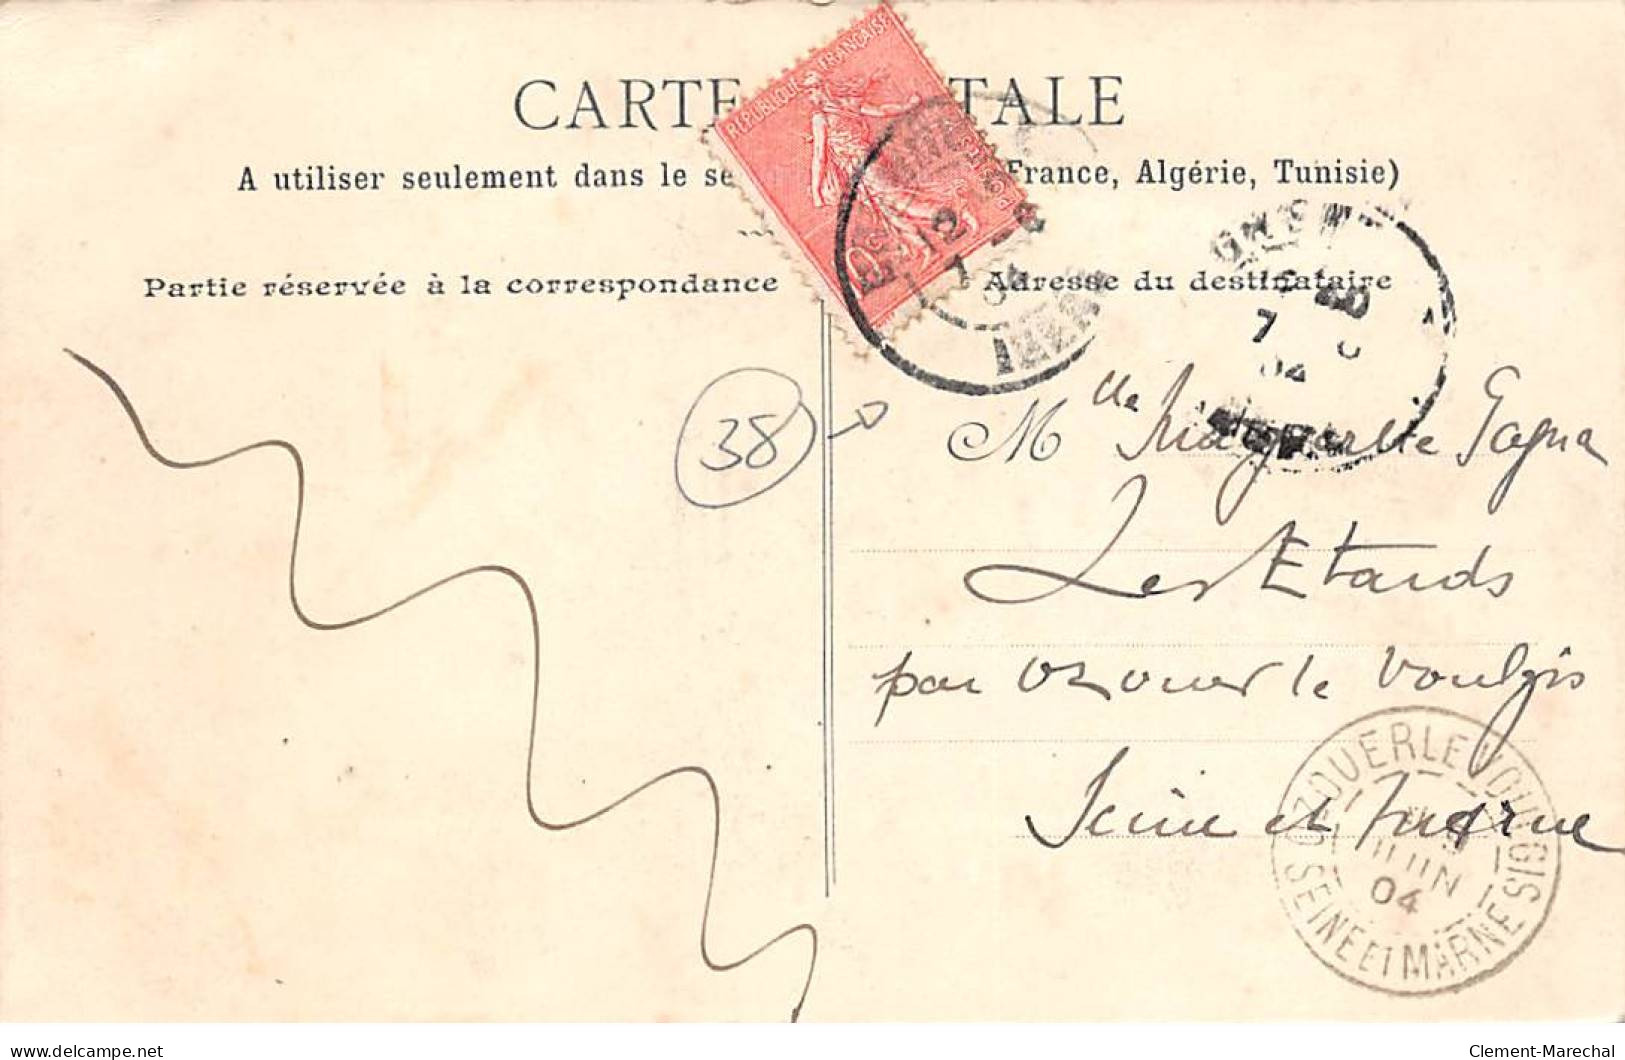 CARTE TALE
A utiliser seulement dans le se France, Algérie, Tunisie)
RÉPUBLIQUE FRANÇAISE
POSTES
10
12
7 -6
04
ISERE
Partie réservée à la correspondance
Adresse du destinataire
7
04
38
Mlle Marguerite Gagna
Les Etards
par Ozouer le Voulgis
Seine et Marne
OZOUER LE VOULGIS
JUIN
04
SEINE ET MARNE
delcampe.net
Clement-Marechal